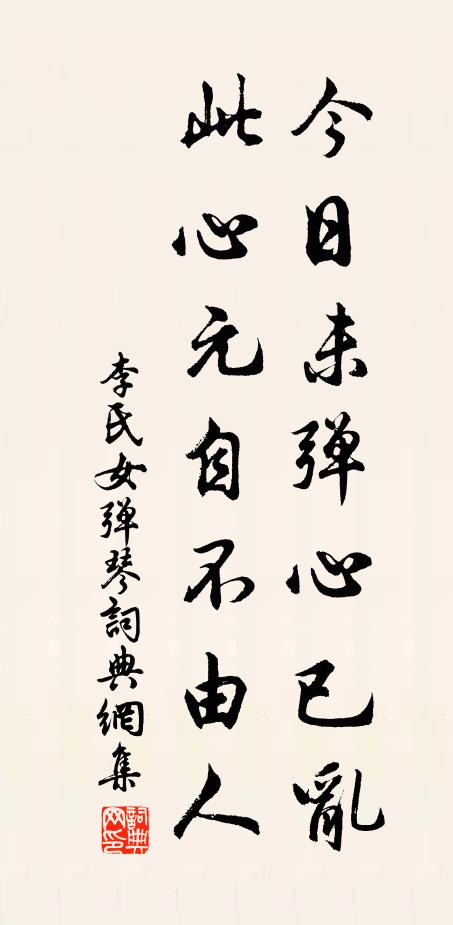 今日未弹心已亂
此心元自不由人
李氏女弹琴詞典網集
詞典網印